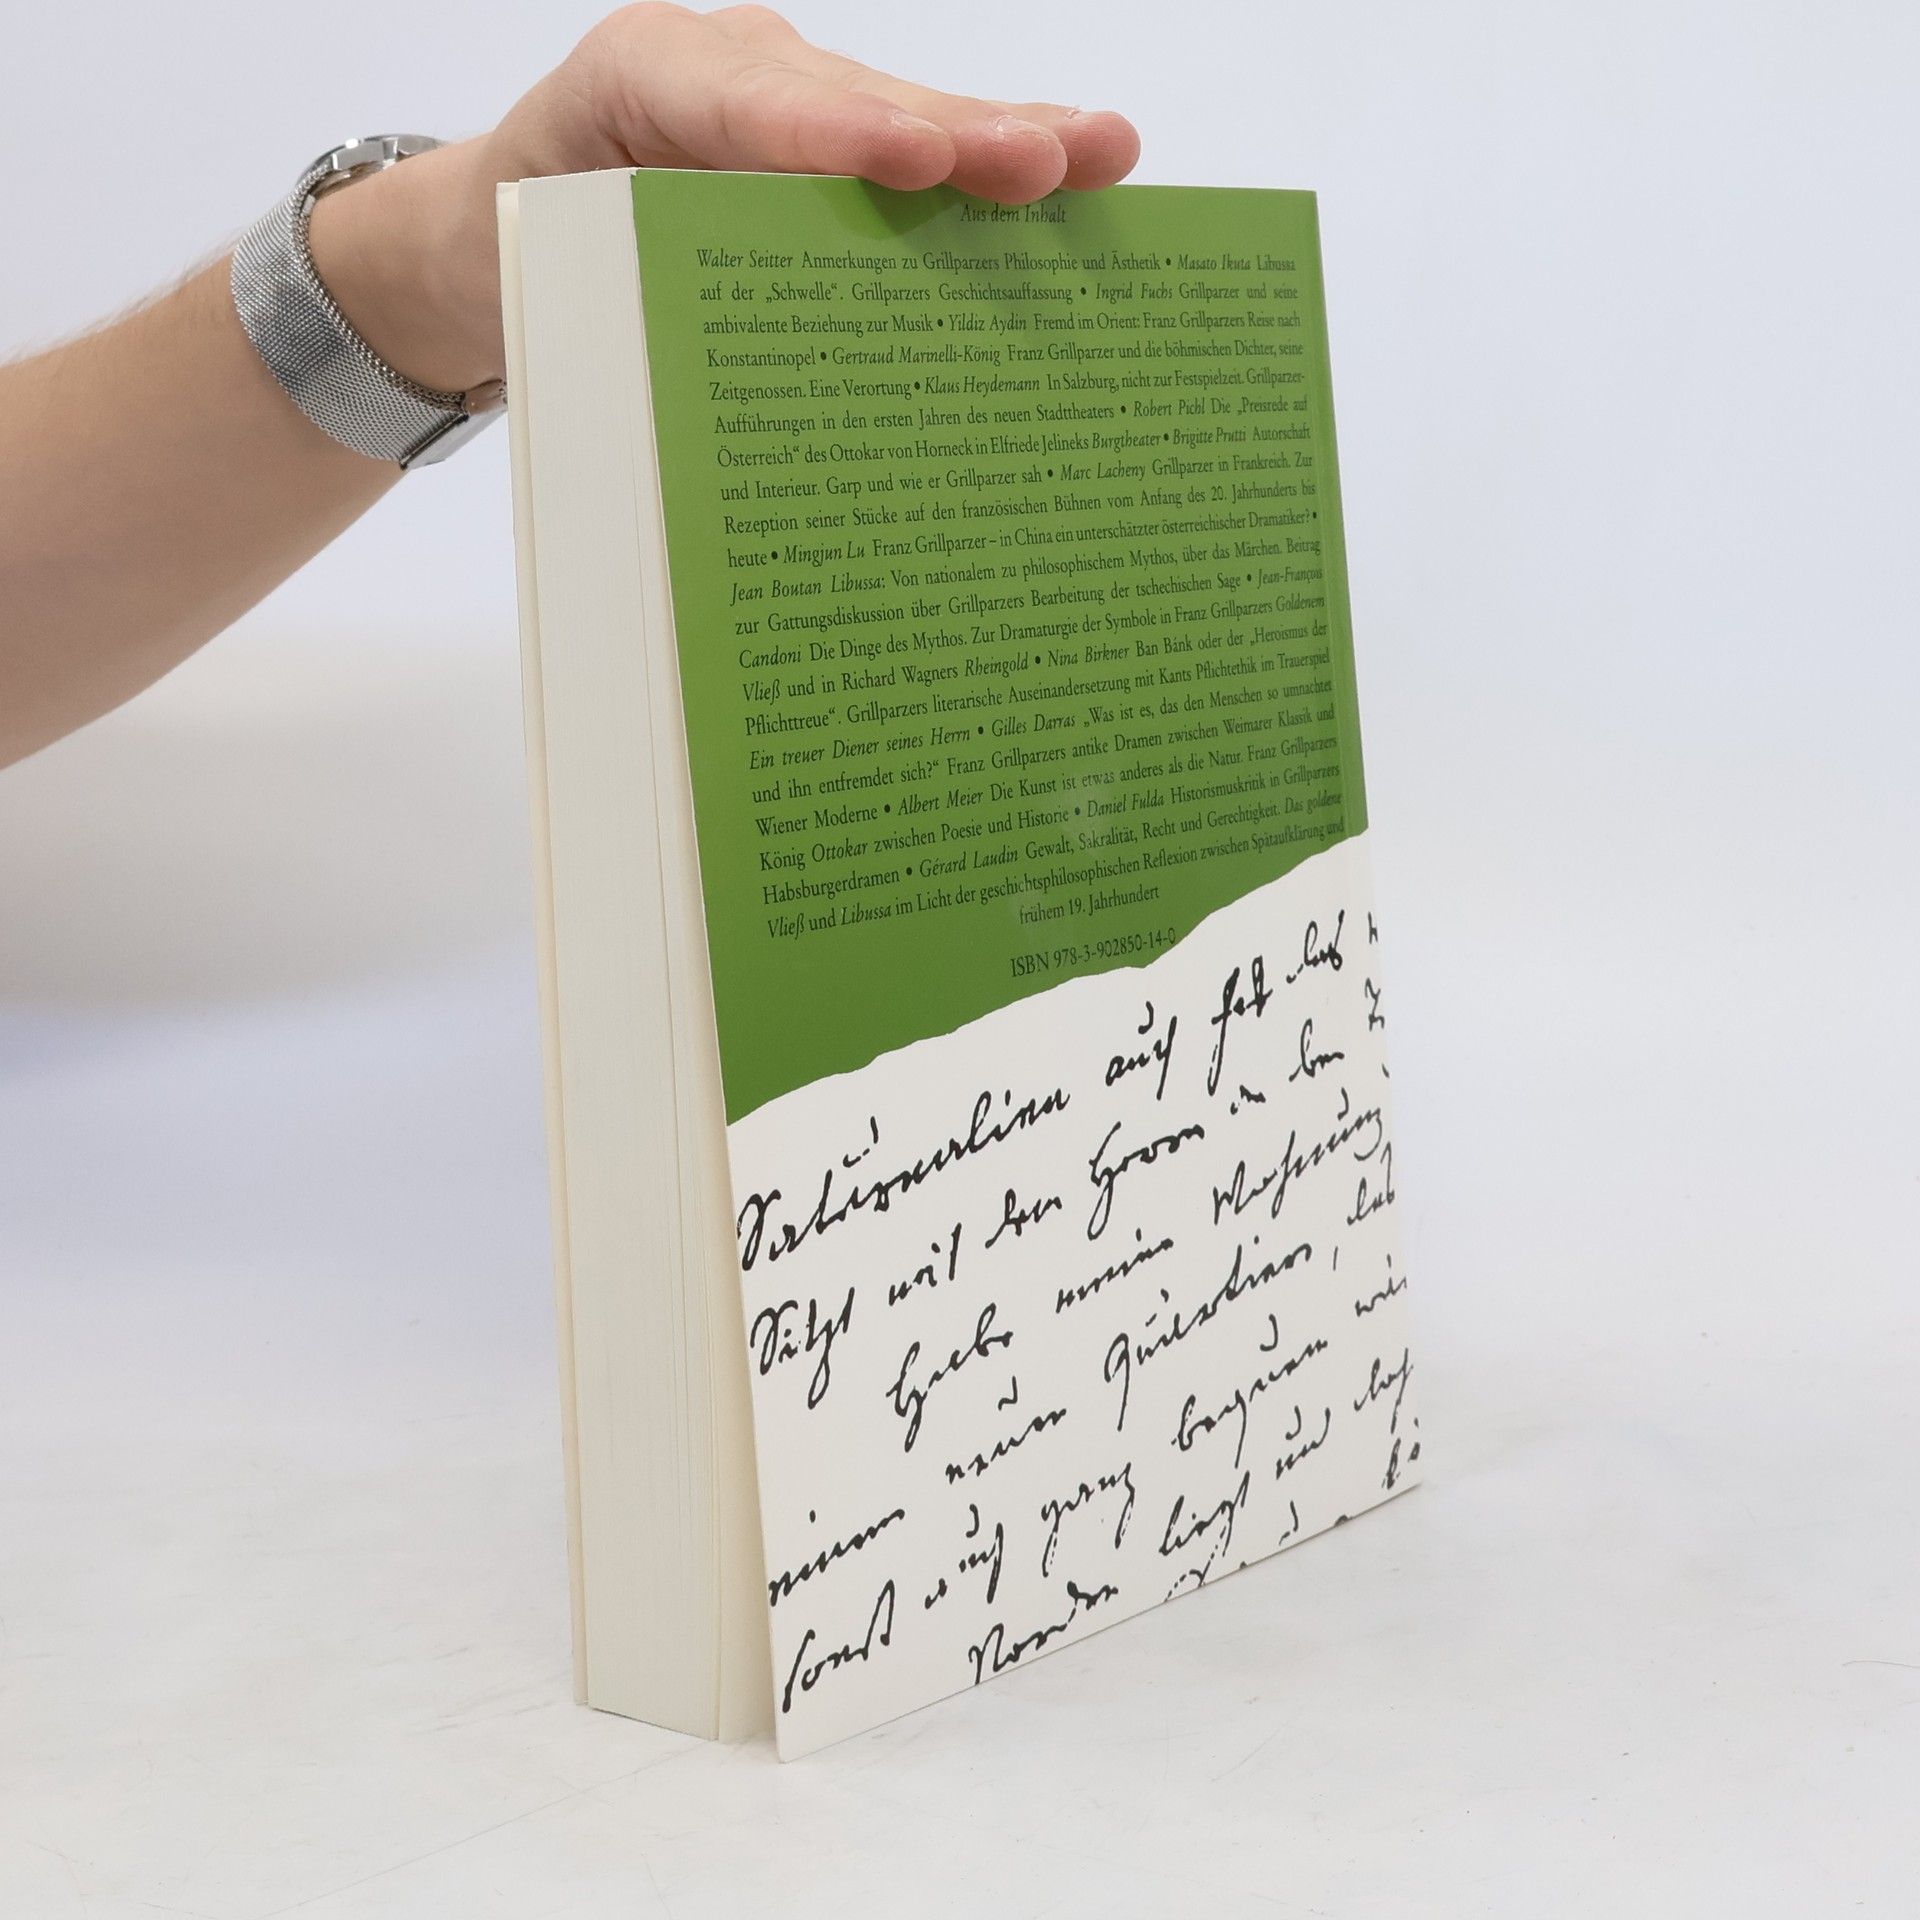 Aus dem Inhalt
Walter Seitter Anmerkungen zu Grillparzers Philosophie und Ästhetik • Masato Ikuta Libussa
auf der „Schwelle“. Grillparzers Geschichtsauffassung • Ingrid Fuchs Grillparzer und seine
ambivalente Beziehung zur Musik • Yildiz Aydin Fremd im Orient: Franz Grillparzers Reise nach
Konstantinopel • Gertraud Marinelli-König Franz Grillparzer und die böhmischen Dichter, seine
Zeitgenossen. Eine Verortung • Klaus Heydemann In Salzburg, nicht zur Festspielzeit. Grillparzer-
Aufführungen in den ersten Jahren des neuen Stadttheaters • Robert Pichl Die „Preisrede auf
Österreich“ des Ottokar von Horneck in Elfriede Jelineks Burgtheater • Brigitte Prutti Autorschaft
und Interieur. Garp und wie er Grillparzer sah • Marc Lacheny Grillparzer in Frankreich. Zur
Rezeption seiner Stücke auf den französischen Bühnen vom Anfang des 20. Jahrhunderts bis
heute • Mingjun Lu Franz Grillparzer – in China ein unterschätzter österreichischer Dramatiker? •
Jean Boutan Libussa: Von nationalem zu philosophischem Mythos, über das Märchen. Beitrag
zur Gattungsdiskussion über Grillparzers Bearbeitung der tschechischen Sage • Jean-François
Candoni Die Dinge des Mythos. Zur Dramaturgie der Symbole in Franz Grillparzers Goldenem
Vließ und in Richard Wagners Rheingold • Nina Birkner Ban Bánk oder der „Heroismus der
Pflichttreue“. Grillparzers literarische Auseinandersetzung mit Kants Pflichtethik im Trauerspiel
Ein treuer Diener seines Herrn • Gilles Darras „Was ist es, das den Menschen so umnachtet
und ihn entfremdet sich?“ Franz Grillparzers antike Dramen zwischen Weimarer Klassik und
Wiener Moderne • Albert Meier Die Kunst ist etwas anderes als die Natur. Franz Grillparzers
König Ottokar zwischen Poesie und Historie • Daniel Fulda Historismuskritik in Grillparzers
Habsburgerdramen • Gérard Laudin Gewalt, Sakralität, Recht und Gerechtigkeit. Das goldene
Vließ und Libussa im Licht der geschichtsphilosophischen Reflexion zwischen Spätaufklärung und
frühem 19. Jahrhundert
ISBN 978-3-902850-14-0
auch
mit den Herrn in
Habe meine Wohnung
neuen Quartier,
auch ganz bequem
liegt und
Norden